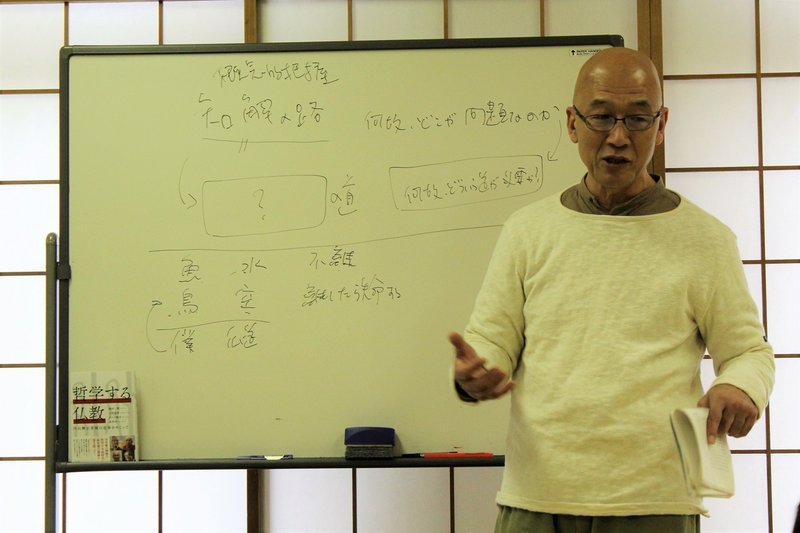 的把握
知解の路 何故、どこが問題なのか
? の道 何故、どういう道が必要か?
魚 水 不離
鳥 空 離したら
僕 仏道
哲学する
仏教